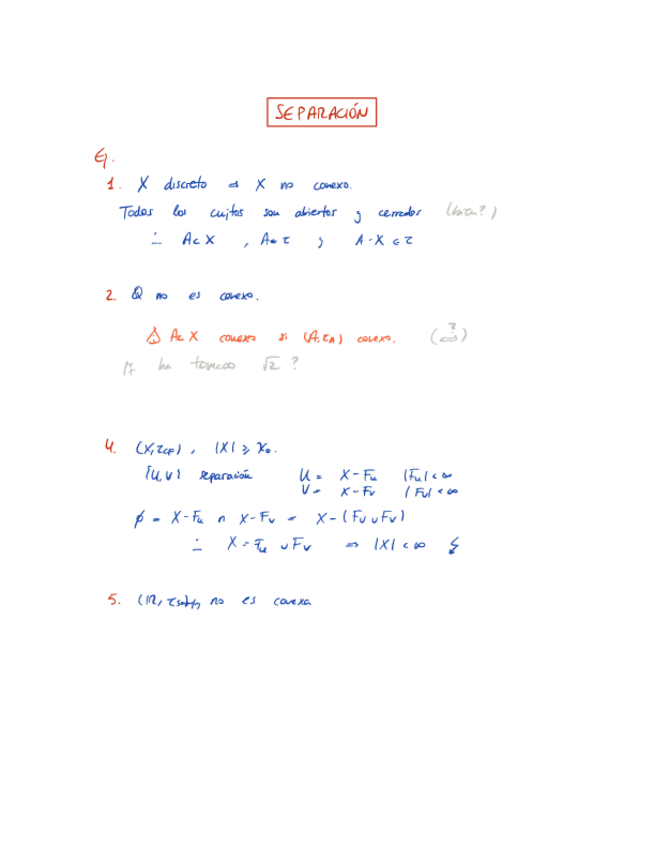 SEPARACIÓN
Ej.
1. X discreto ⇒ X no conexo.
Todos los cujtos son abiertos y cerrados
∴ A⊂X , A∈τ y A-X∈τ
2. Q no es conexo.
A⊂X conexo si (A,τA) conexo. (⇔?)
√2 ?
4. (X,τCF), |X| ≥ ℵ₀.
{U,V} separación U = X-Fu |Fu|<∞
V = X-Fv |Fv|<∞
∅ = X-Fu ∩ X-Fv = X-(Fu∪Fv)
∴ X=Fu∪Fv ⇒ |X|<∞ ↯
5. no es conexa